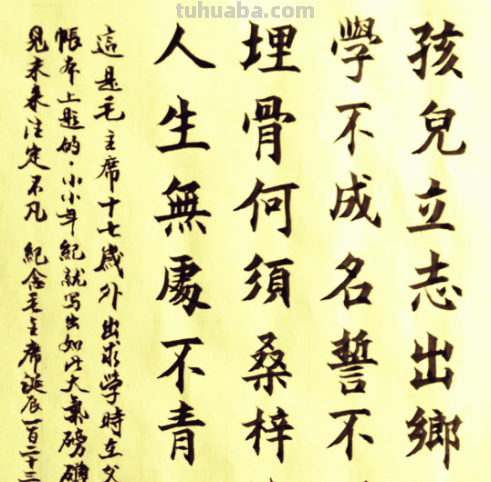 tuhuaba.com
孩兒立志出鄉
學不成名誓不
埋骨何須桑梓
人生無處不青
這是毛主席十七歲外出求學時在父
帳本上題的·小小年紀就写出如此大氣磅礴
見未来注定不凡 紀念毛主席誕辰一百二十三